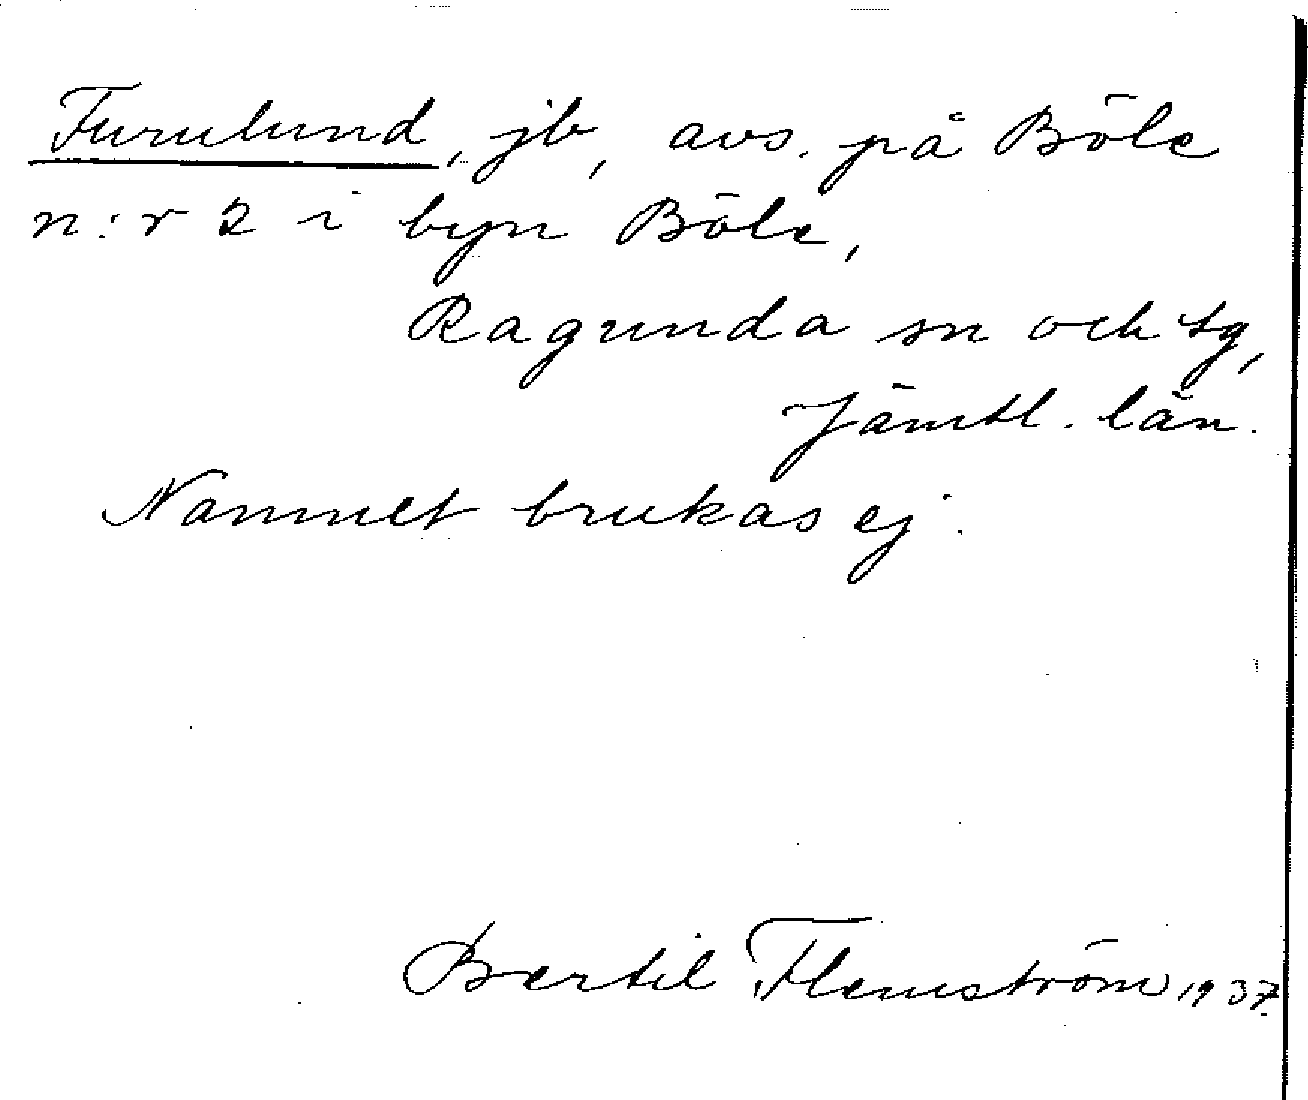 Furulund, jb, avs. på Böle
n:r 2 i byn Böle,
Ragunda sn och tg,
Jämtl. län.
Namnet brukas ej.
Bertil Flemström 1937.